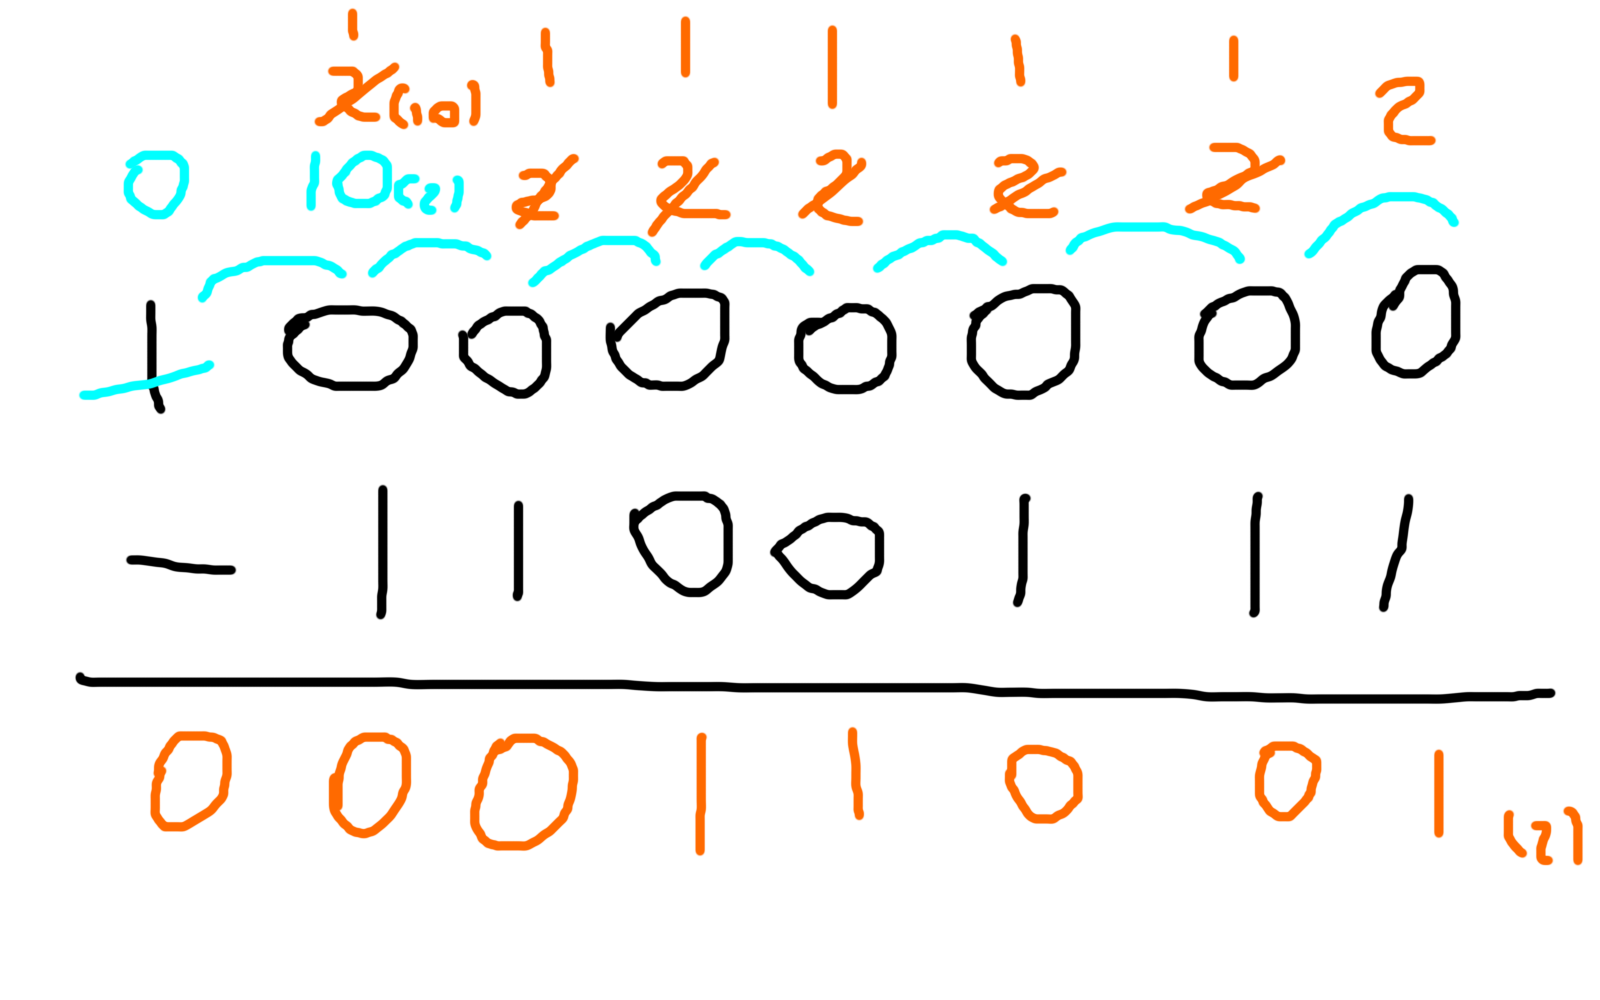 1
2(10) 1 1 1 1 1 2
0 10(2) 2 2 2 2 2
1 0 0 0 0 0 0 0
- 1 1 0 0 1 1 1
0 0 0 1 1 0 0 1 (2)